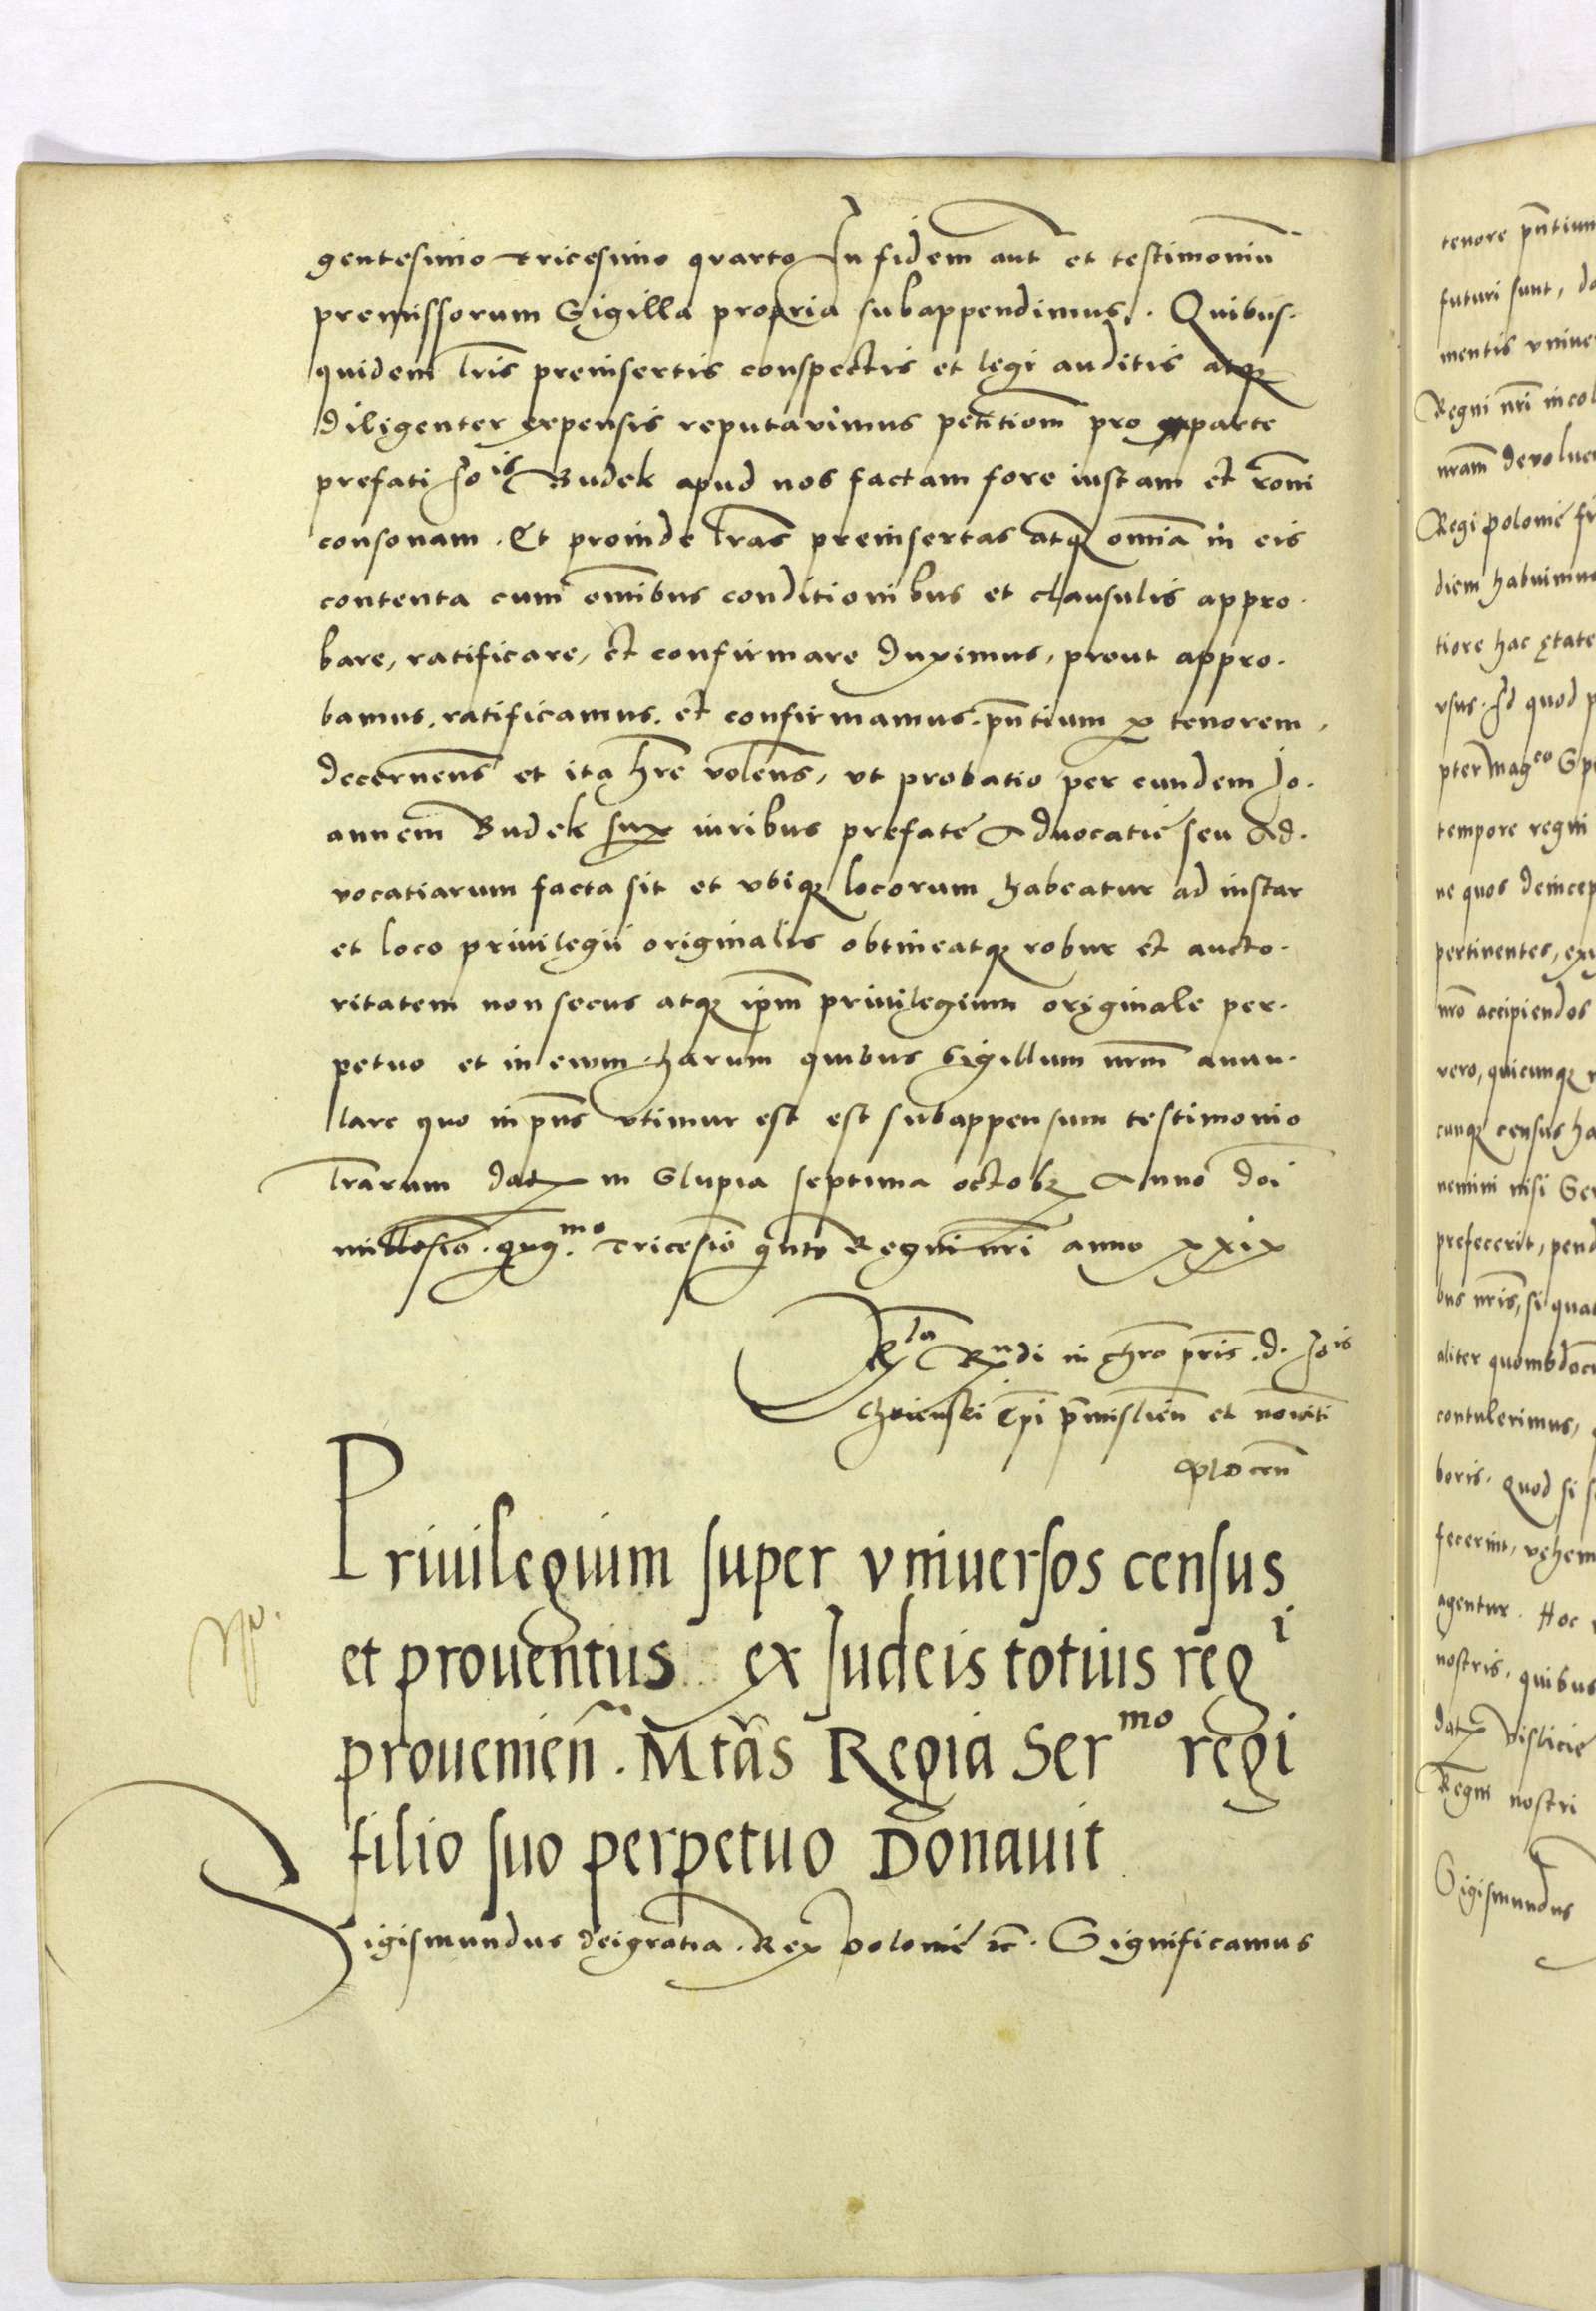 gentesimo tricesimo qvarto In fidem aut et testimoniu
premissorum Sigilla propria subappendimus. Quibus.
quidem lris preinsertis conspectis et legi auditis atq
diligenter expensis reputavimus petitiom pro parte
prefati Jois Budek apud nos factam fore iustam et roni
consonam. Et proinde lras preinsertas atq omia in eis
contenta cum omibus conditionibus et clausulis appro.
bare, ratificare, et confirmare duximus, prout appro.
bamus, ratificamus. et confirmamus. pntium p tenorem.
decernens et ita hre volens, vt probatio per eundem Jo.
annem Budek sup iuribus prefate Aduocatie seu Ad.
vocatiarum facta sit et vbiq locorum habeatur ad instar
et loco priuilegii originalis obtineatq robur et aucto.
ritatem non secus atq ipm priuilegium originale per.
petuo et in ewm harum quibus Sigillum nrm annu.
lare quo in pns vtimur est est subappensum testimonio
lrarum dat in Slupia septima octobr Anno doi
millesio. qug.mo tricesio qnto Regni nri anno xxix
Rla Rndi in chro pris. d. Jois
Choienski Epi pmislien et noiati
plocen
Priuilegium super vniuersos census
et prouentus ex Judeis totius regi
prouenien. Mtas Regia Sermo regi
filio suo perpetuo Donauit
Sigismundus dei gratia. Rex polonie zc. Significamus
tenore pntium
futuri sunt,
mentis
Regni nri incol
nram
Regi polonie
diem habuimus
tiore hac etate
vsus. Id quod
pter magco
tempore regni
ne quos deincep
pertinentes,
nro accipiendos
vero, quicunq
cunq census
nemini nisi
prefecerit,
bus nris, si
aliter
contulerimus,
boris. Quod si
fecerint,
agentur. Hoc
nostris. quibus
dat vislicie
Regni nostri
Sigismundus